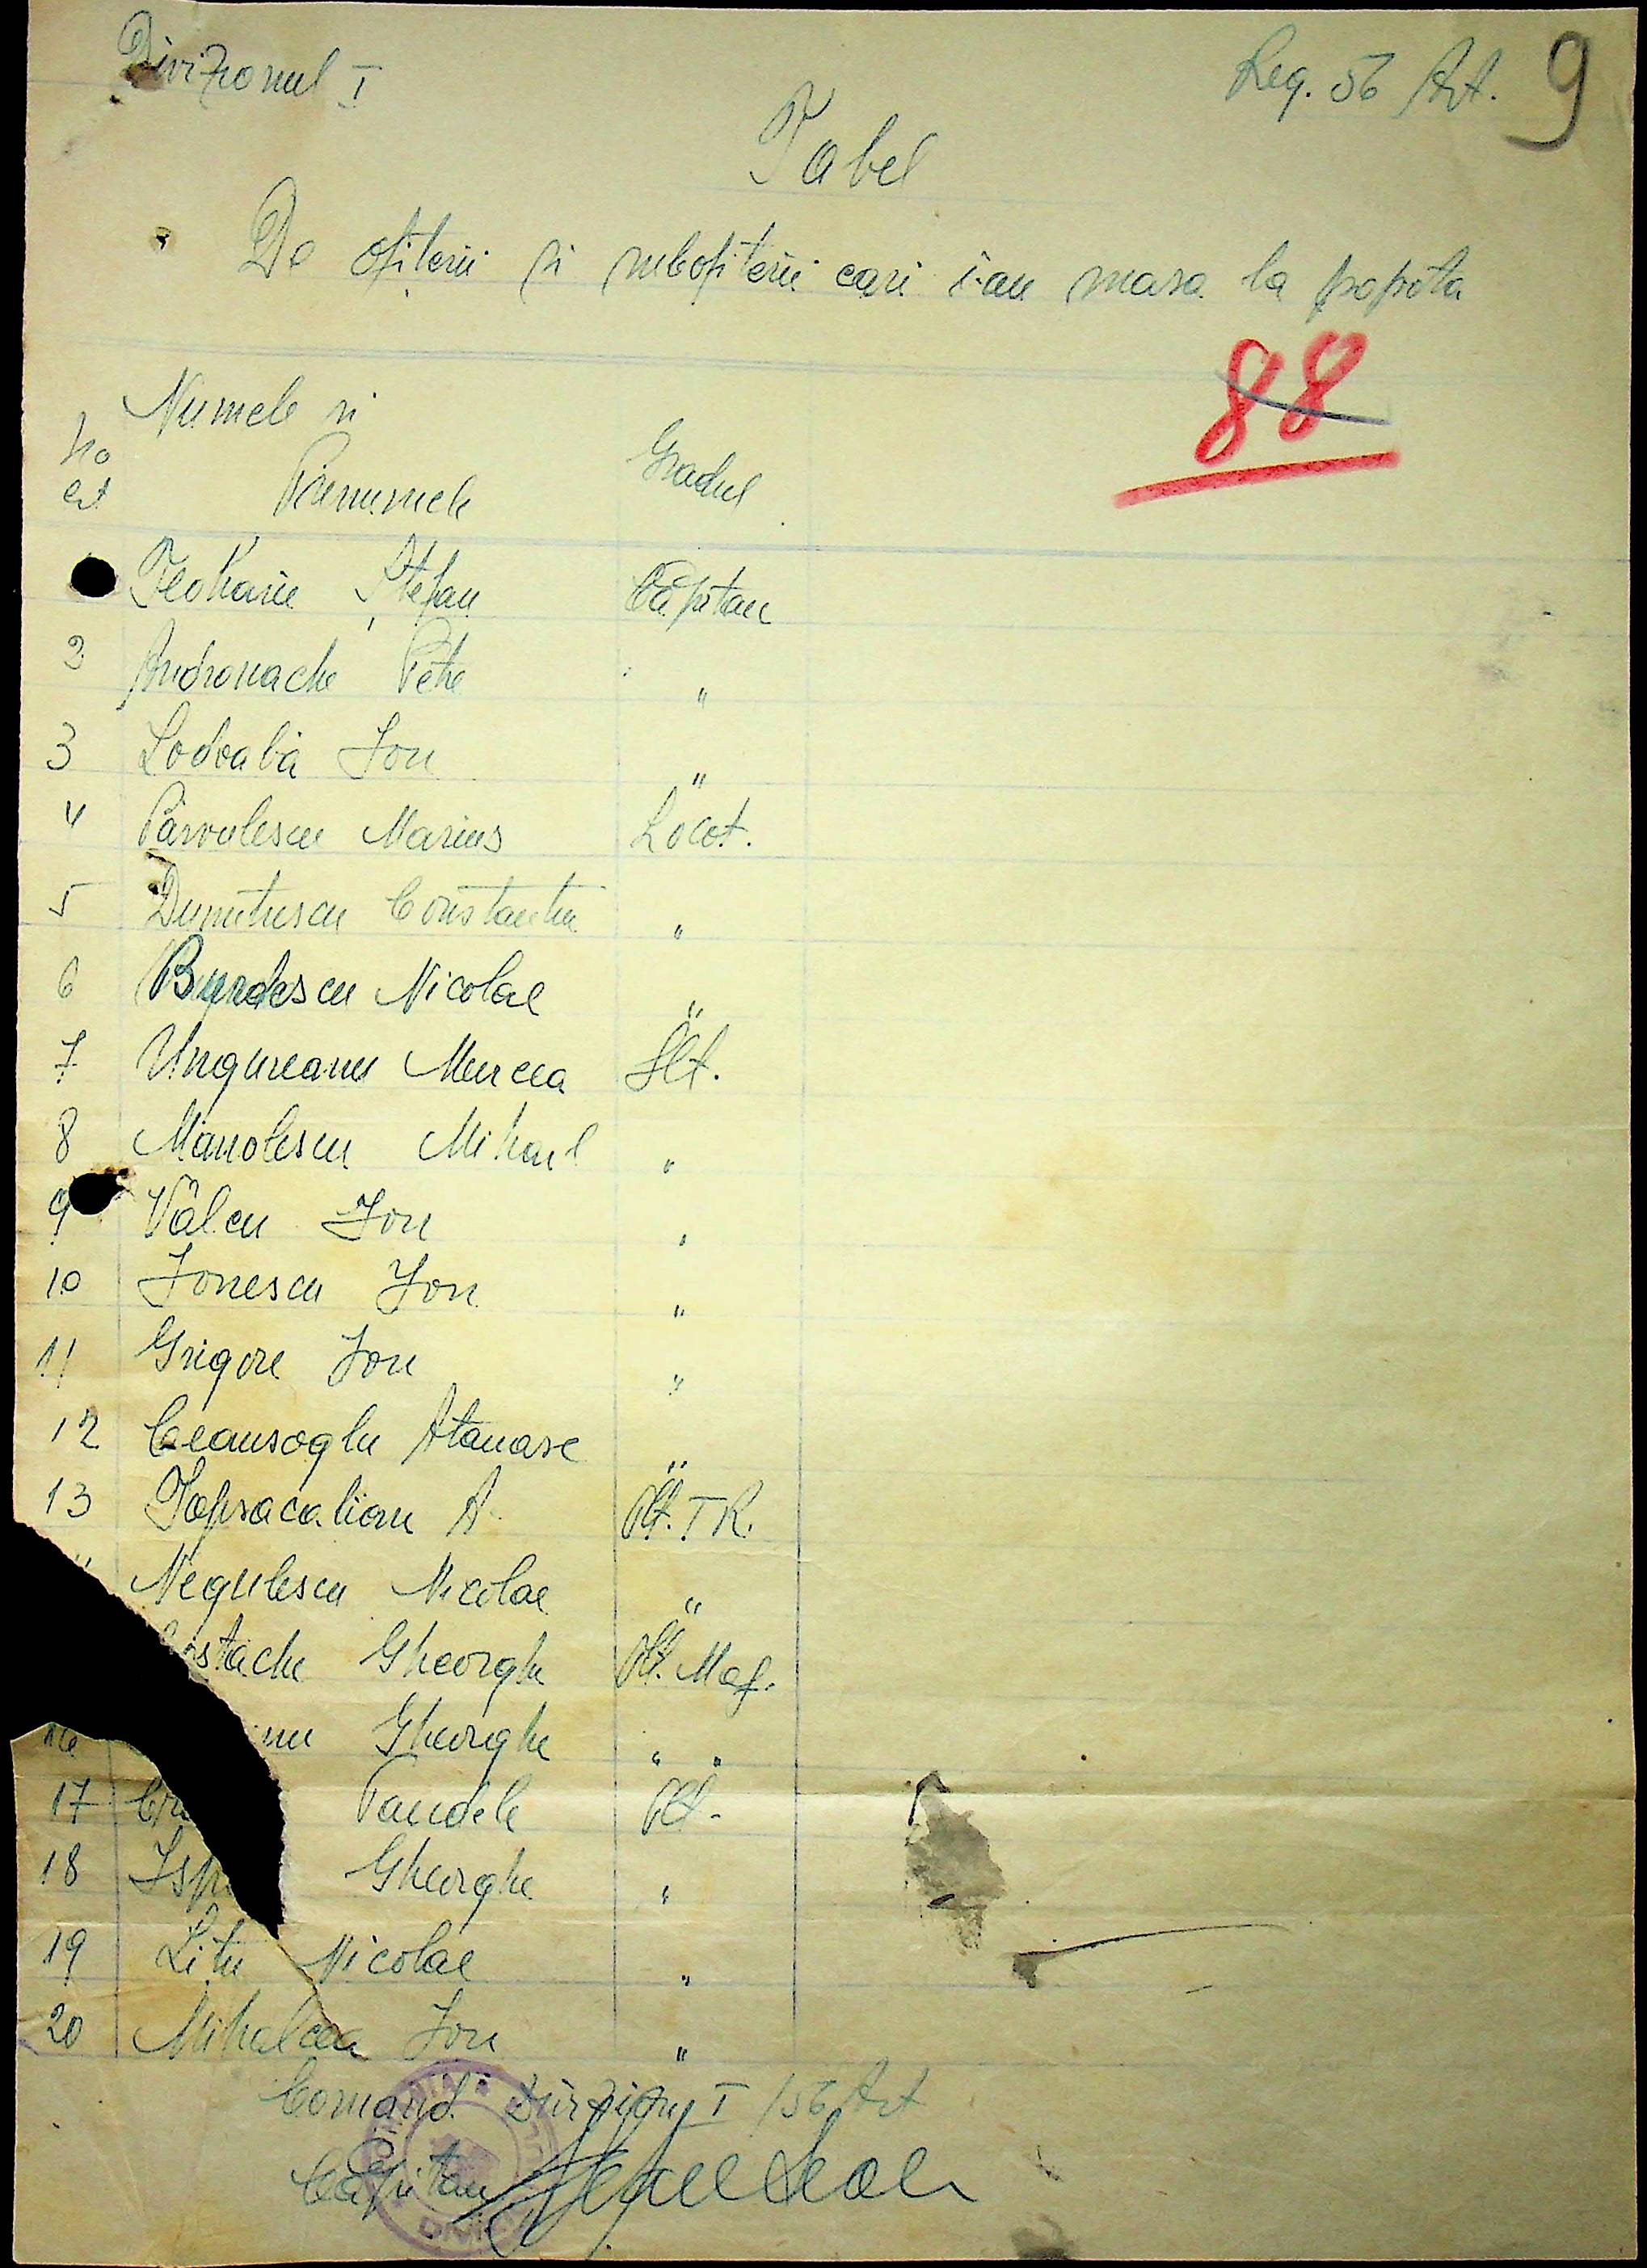 Divizionul I
Reg. 56 Art. 9
Tabel
De ofiterii si subofiterii cari i-au masa la popota
88
Numele si
No
crt Pronumele Gradul
Teoharie Ștefan Căpitan
2 Andronache Petre "
3 Lodoabă Ion "
4 Pârvulescu Marius Locot.
5 Dumitrescu Constantin "
6 Burdescu Nicolae "
7 Ungureanu Mircea Slt.
8 Manolescu Mihail "
9 Vâlcu Ion "
10 Ionescu Ion "
11 Grigore Ion "
12 Ceausoglu Atanase "
13 Topracalian A. Plt. T R.
Negulescu Nicolae "
ostache Gheorghe Plt. Maj.
16 nu Gheorghe " "
17 Cri Pandele Plt.
18 Isp Gheorghe "
19 Litu Nicolae "
20 Mihalcea Ion "
Comand. Divizion I /56 Art
Căpitan